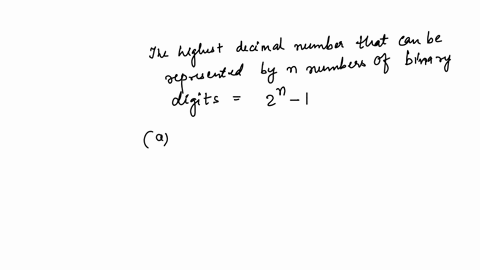 The highest decimal number that can be
represented by n numbers of binary
digits = 2^n - 1
(a)